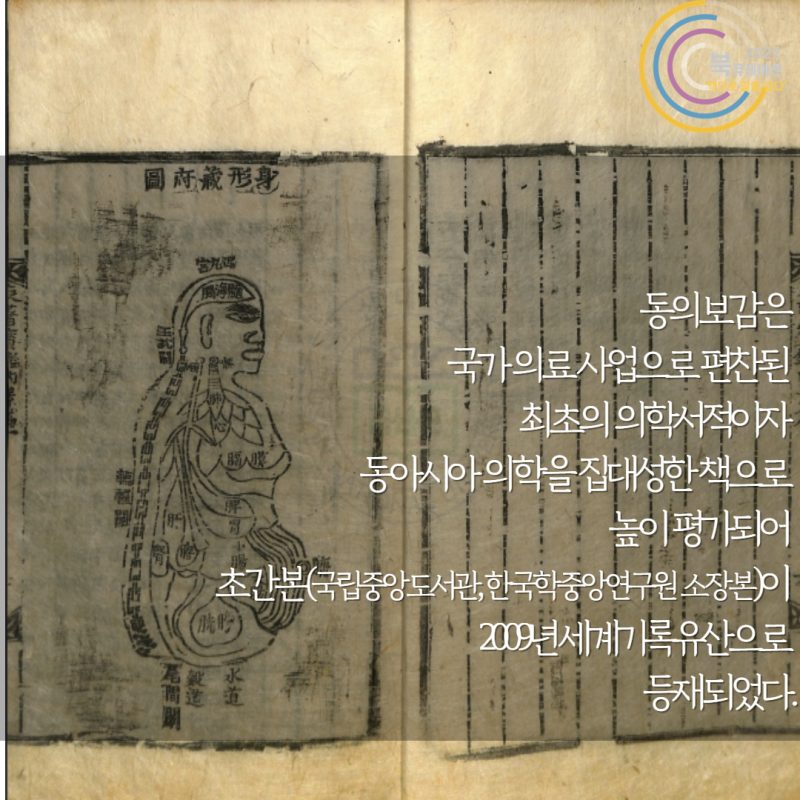 身形藏府圖
髓海腦
肺
心
脾
胃
肝
膀
胱
水道
穀道
尾閭關
북
동의보감은
국가 의료 사업으로 편찬된
최초의 의학서적이자
동아시아 의학을 집대성한 책으로
높이 평가되어
초간본(국립중앙도서관, 한국학중앙연구원 소장본)이
2009년 세계기록유산으로
등재되었다.